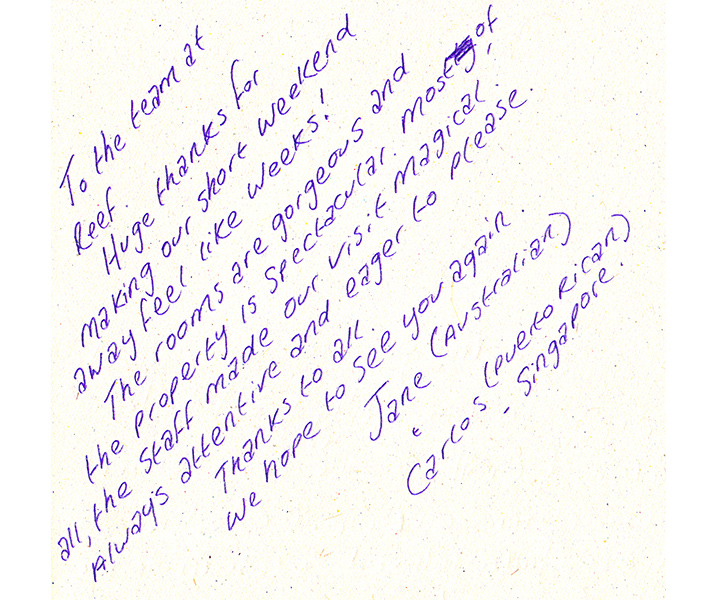 To the team at
Reef.
Huge thanks for
making our short weekend
away feel like weeks!
The rooms are gorgeous and
the property is spectacular. Most of
all, the staff made our visit magical.
Always attentive and eager to please.
Thanks to all.
We hope to see you again.
Jane (Australian)
&
Carlos (Puerto Rican)
- Singapore.